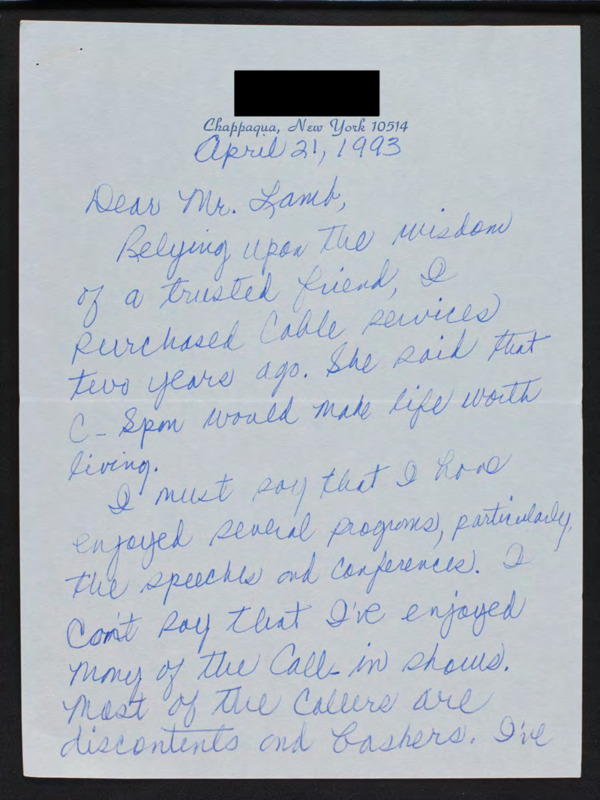 Chappaqua, New York 10514
April 21, 1993
Dear Mr. Lamb,
Relying upon the wisdom
of a trusted friend, I
purchased Cable services
two years ago. She said that
C-Span would make life worth
living.
I must say that I have
enjoyed several programs, particularly,
the speeches and conferences. I
can't say that I've enjoyed
many of the Call-in shows.
Most of the Callers are
discontents and bashers. I've